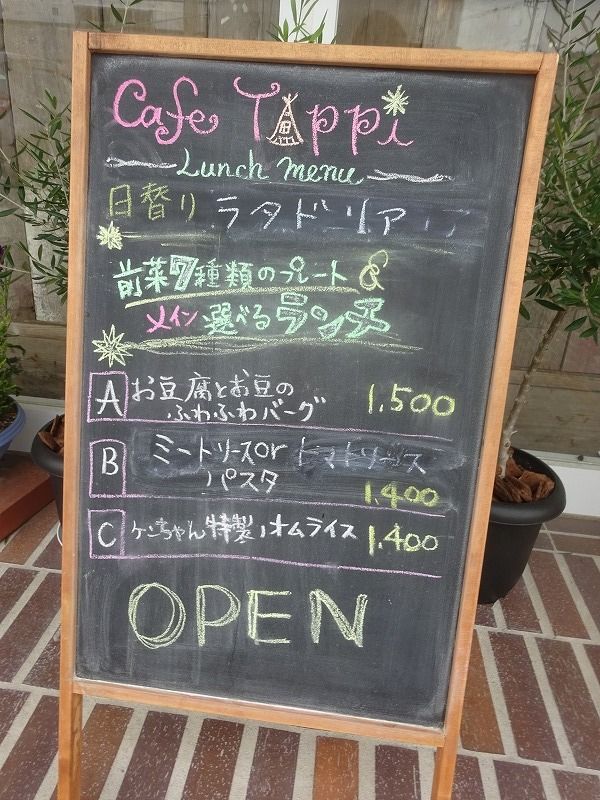 Cafe Tappi
Lunch menu
日替り ラタドリア
前菜7種類のプレート &
メイン 選べるランチ
A お豆腐とお豆の
ふわふわバーグ 1,500
B ミートソースor トマトソース
パスタ 1.400
C ケンちゃん特製オムライス 1.400
OPEN